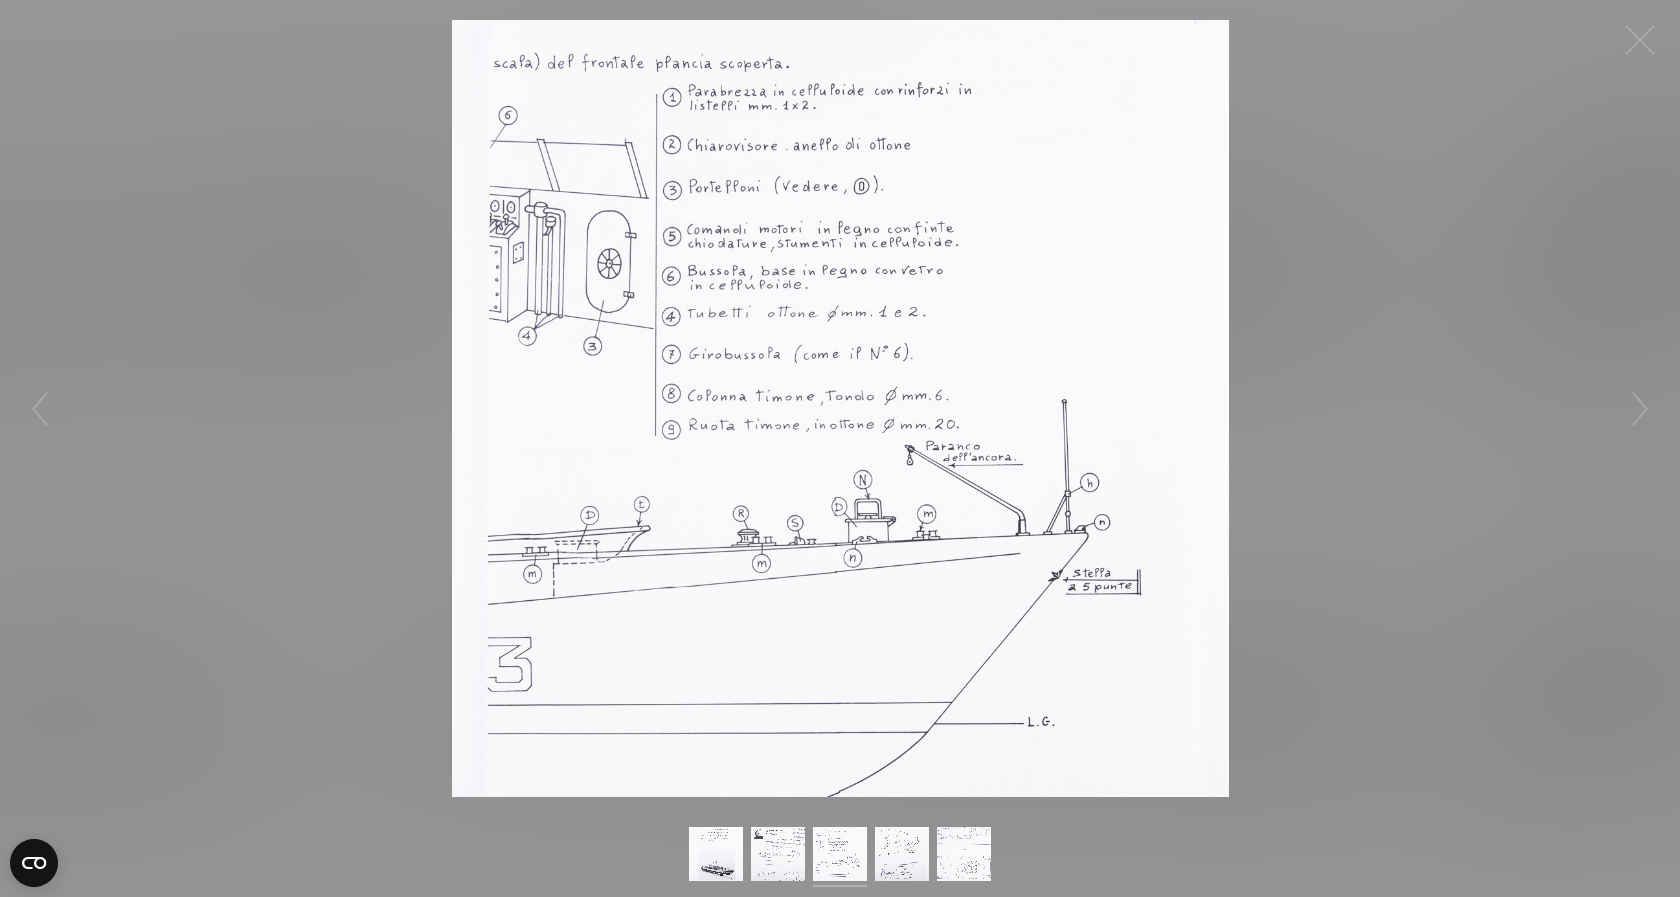 scala) del frontale plancia scoperta.
1 Parabrezza in celluloide con rinforzi in
listelli mm. 1x2.
2 Chiarovisore - anello di ottone
3 Portelloni (Vedere, O).
5 Comandi motori in legno con finte
chiodature, stumenti in celluloide.
6 Bussola, base in legno con vetro
in celluloide.
4 Tubetti ottone ø mm. 1 e 2.
7 Girobussola (come il N° 6).
8 Colonna timone, Tondo Ø mm. 6.
9 Ruota timone, in ottone Ø mm. 20.
6
4
3
Paranco
dell'ancora.
h
N
D
t
D
R
S
m
n
m
m
n
stella
a 5 punte
3
L.G.